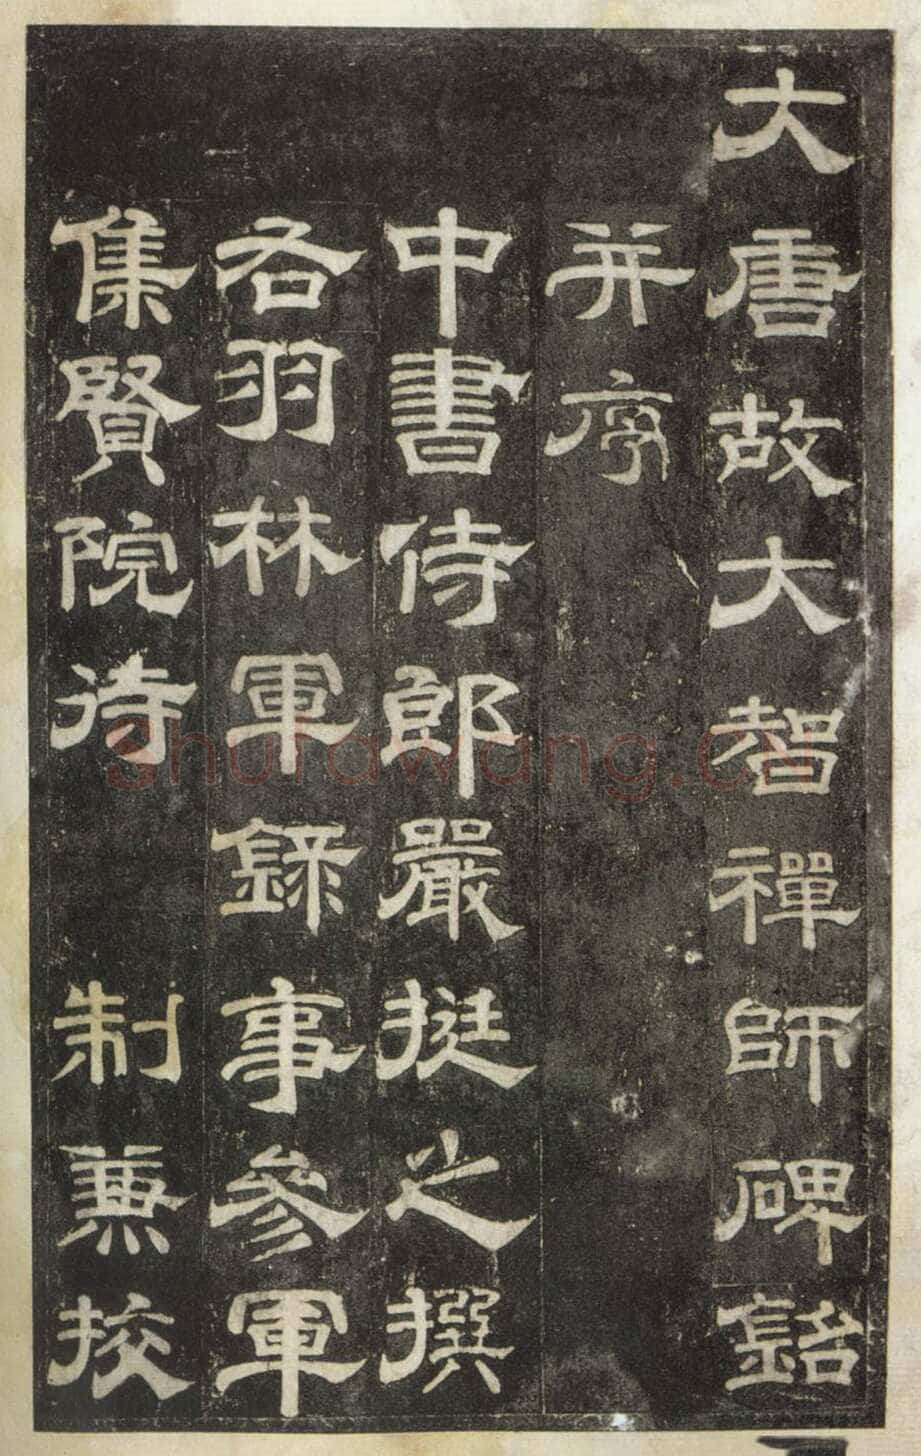 大唐故大智禪師碑銘
并序
中書侍郎嚴挺之撰
右羽林軍錄事參軍
集賢院待制兼挍
shufawang.cn